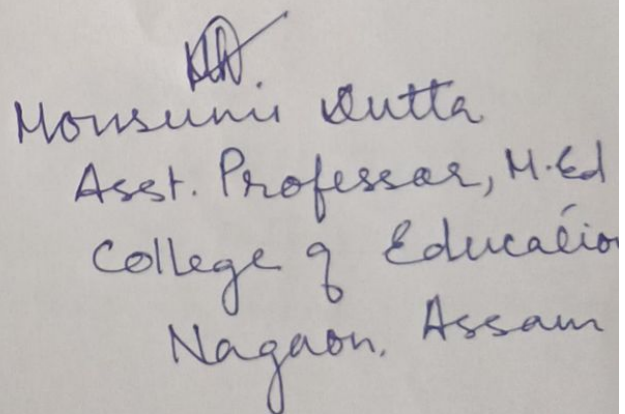 Mousumi Dutta
Asst. Professor, M.Ed
College of Education
Nagaon, Assam